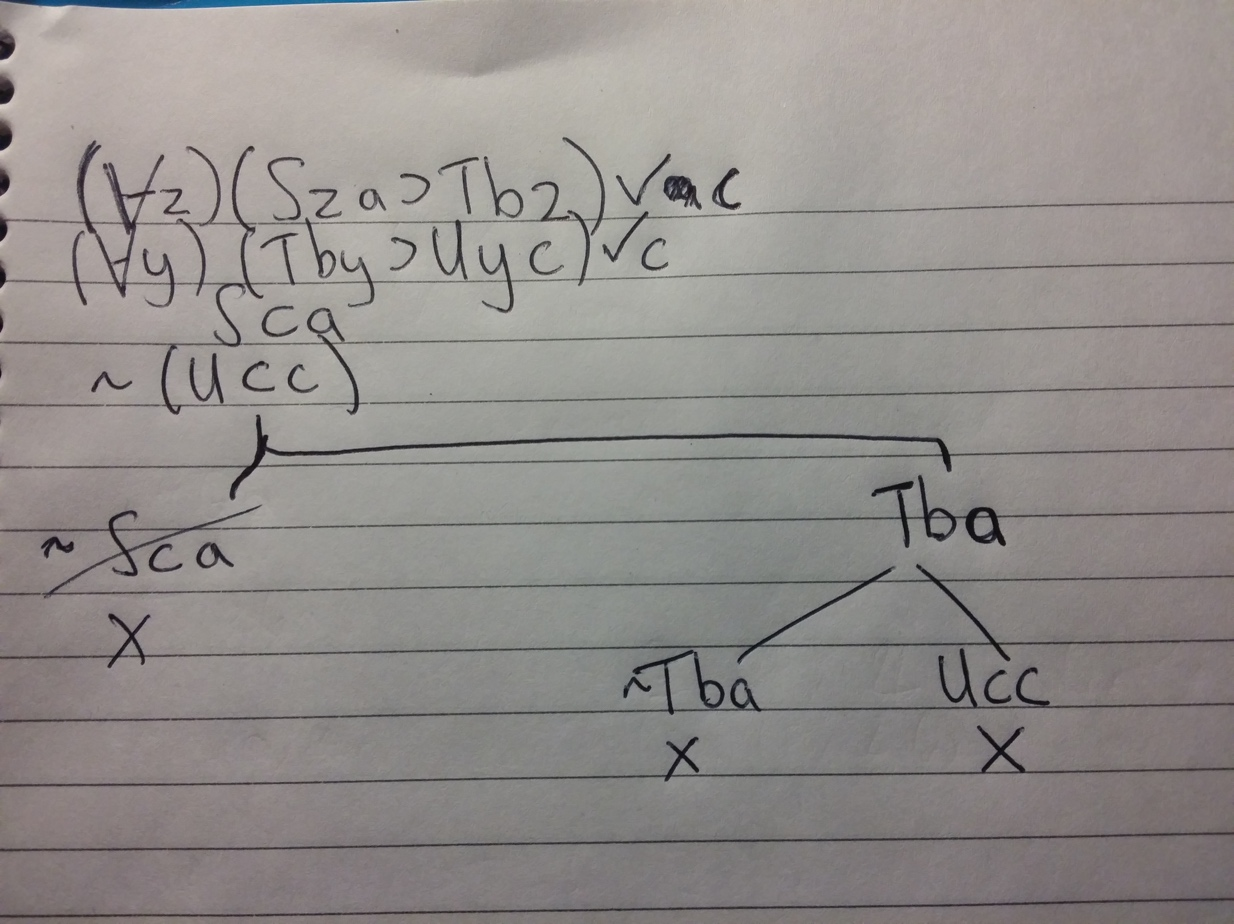 (∀z)(Sza⊃Tbz)✓ c
(∀y)(Tby⊃Uyc)✓c
Sca
~(Ucc)
~Sca Tba
X
~Tba Ucc
X X